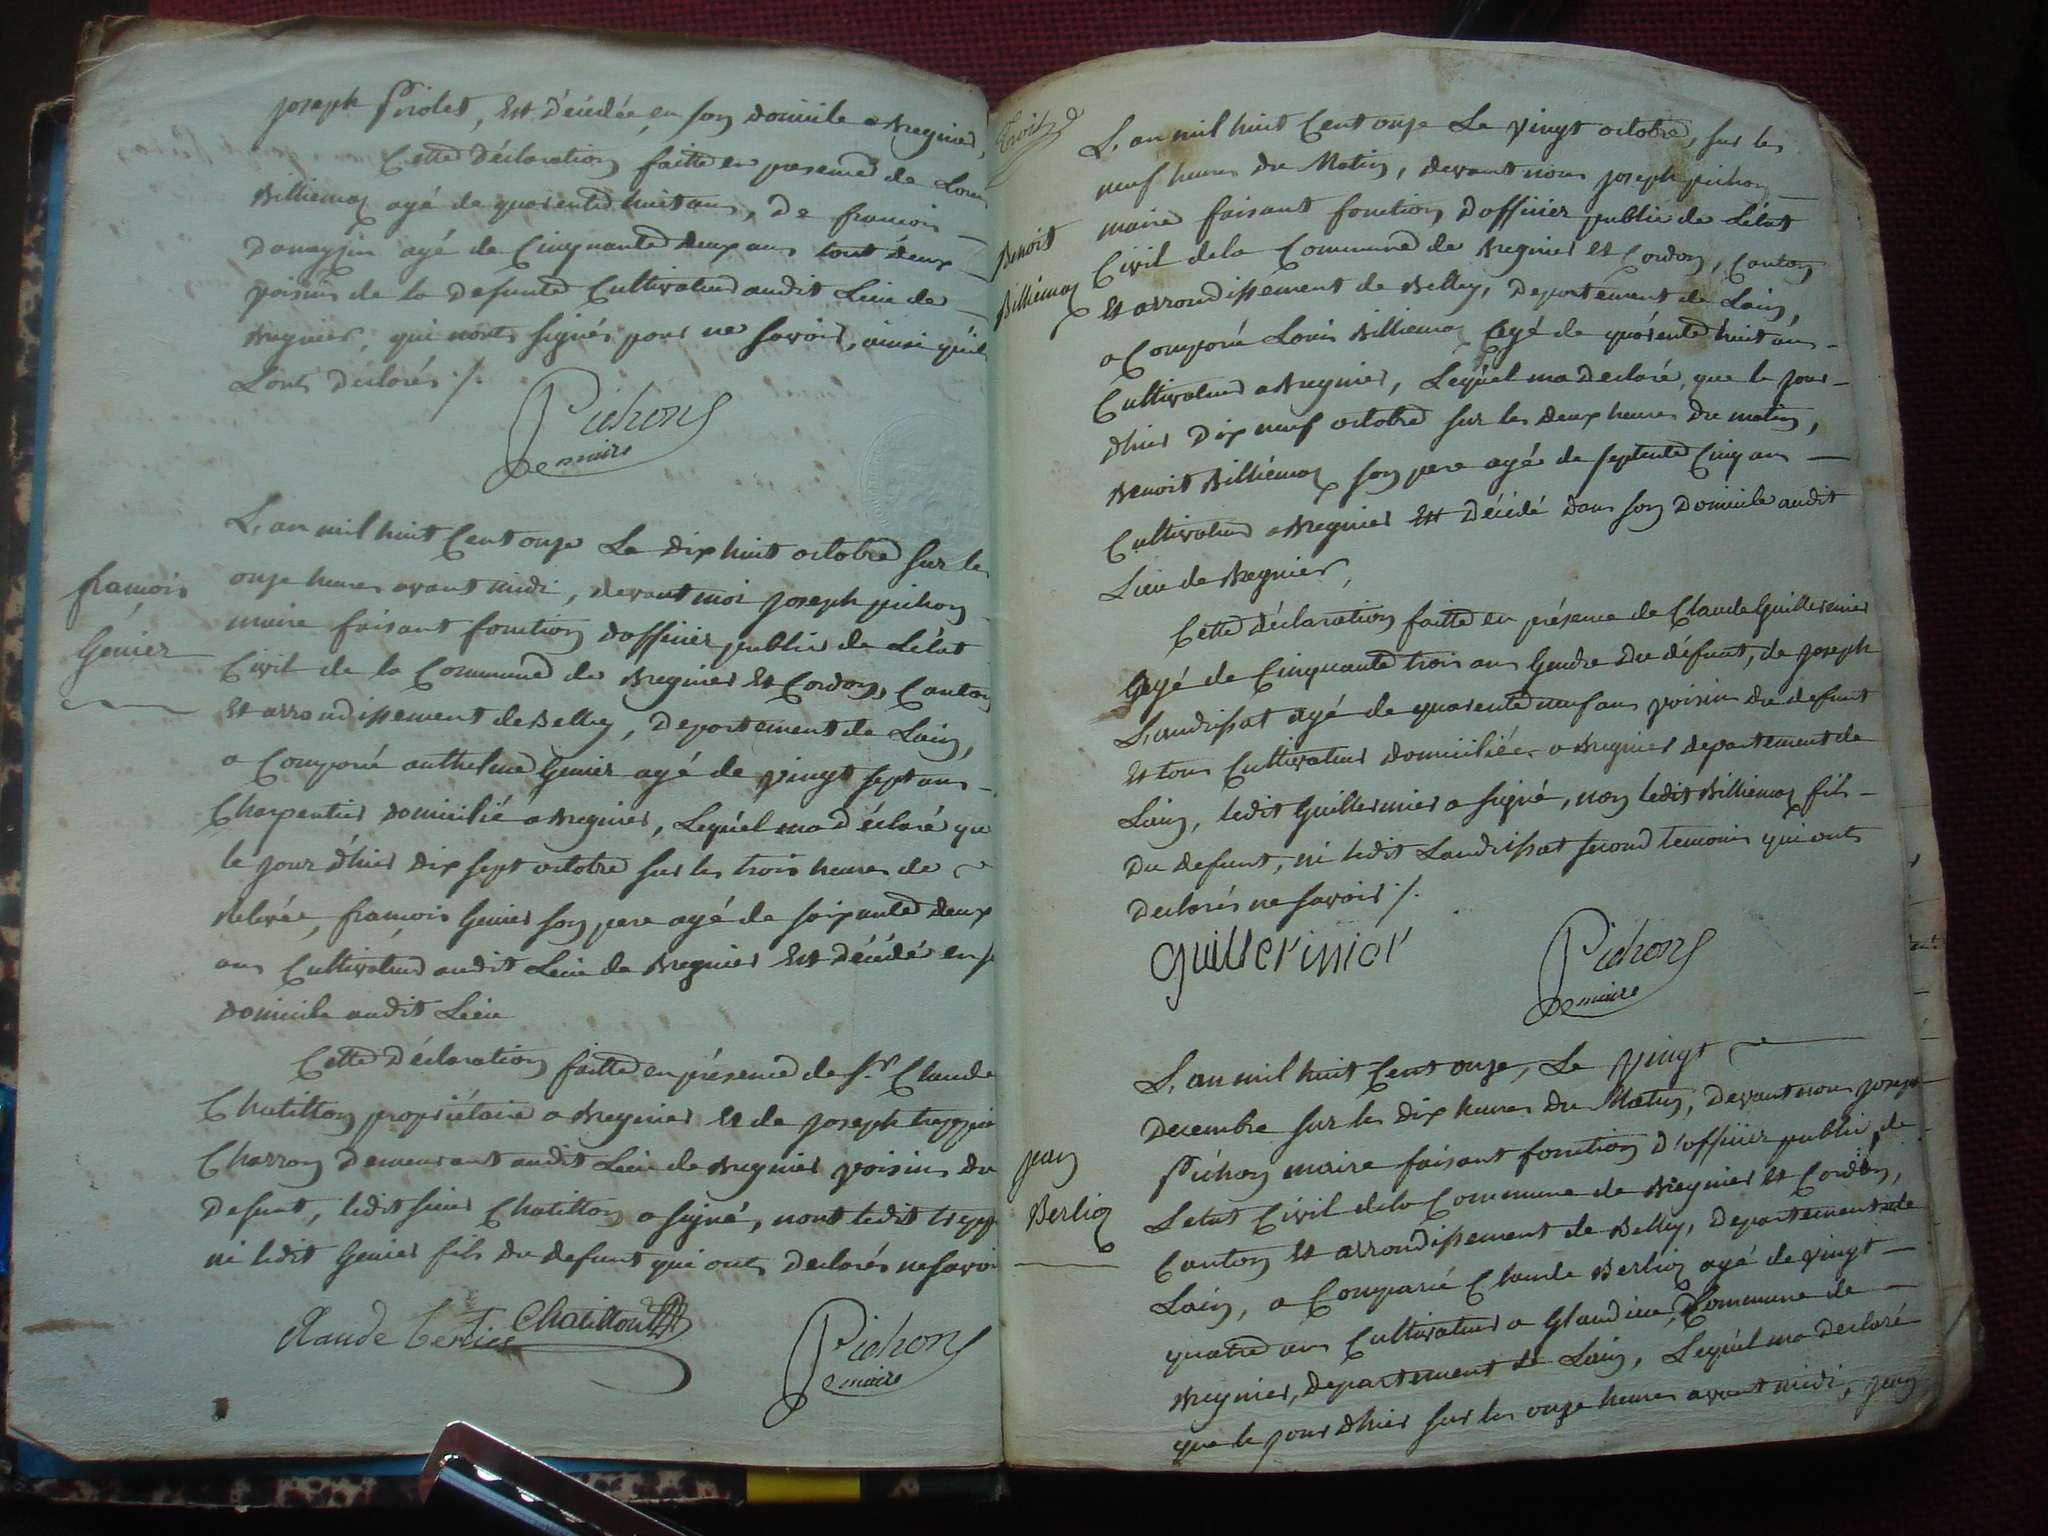 joseph Pirolet, Est Décédée en son domicile a Bregnier,
Cette Déclaration faitte en presence de Louis
Billiemaz agé de quarente huit ans, De francois
agé de Cinquante deux ans tout deux
voisins de la defunte Cultivateur audit Lieu de
Bregnier, qui nonts signés pour ne savoir, ainsi quils
Lonts Declarés ./.
Pichon
maire
francois
Genier
L, an mil huit Cent onze Le dix huit octobre sur les
onze heures avant midi, devant moi joseph pichon
maire faisant fonction dofficier public de Létat
Civil de la Commune de Bregnier Et Cordon, Canton
Et arrondissement de Belley, Departement de Lain,
a Comparu anthelme Genier agé de vingt sept ans
Charpentier domicilié a Bregnier, Lequel ma déclaré que
le jour d'hier dix sept octobre sur les trois heures de
relevée, francois Genier son pere agé de soixante deux
ans Cultivateur audit Lieu de Bregnier Est Décédé en s
domicile audit Lieu
Cette Déclaration faitte en présence de Sr. Claude
Chatillon propriétaire a Bregnier Et de joseph
Charron demeurant audit Lieu de Bregnier voisins du
defunt, ledit sieur Chatillon a signé, nont ledit
ni ledit Genier fils du defunt qui onts declarés ne savoir
Claude Chatillon
Pichon
maire
Benoit
Billiemaz
L, an mil huit Cent onze Le vingt octobre, sur les
neuf heures du Matin, devant nous joseph pichon
maire faisant fonction dofficier public de Létat
Civil dela Commune de Bregnier Et Cordon, Canton
Et arrondissement de Belley, Departement de Lain,
a Comparu Louis Billiemaz agé de quarente huit ans
Cultivateur a Bregnier, Lequel ma Declaré, que le jour
dhier Dix neuf octobre sur les deux heures du matin,
Benoit Billiémaz son pere agé de septente Cinq ans
Cultivateur a Bregnier Est Décédé dans son Domicile audit
Lieu de Bregnier,
Cette déclaration faitte en présence de Claude Guillermier
agé de Cinquante trois ans Gendre du défunt, de joseph
Landissat agé de quarente neuf ans voisin du defunt
Et tous Cultivateur domiciliés a Bregnier departement de
Lain, ledit Guillermier a signé, non ledit Billiemaz fils
du defunt, ni ledit Landissat second temoin qui onts
declarés ne savoir ./.
guillermier
Pichon
maire
jean
Berlioz
L, an mil huit Cent onze, Le vingt
Decembre sur les dix heures du Matin, Devant nous joseph
Pichon maire faisant fonction d'officier public, de
Létat Civil dela Commune de Bregnier Et Cordon,
Canton Et arrondissement de Belley, Departement de
Lain, a Comparu Claude Berlioz agé de vingt
quatre ans Cultivateur a Glandieu, Commune de
Bregnier, departement de Lain, Lequel ma declaré
que le jour dhier sur les onze heures avant midi, jean